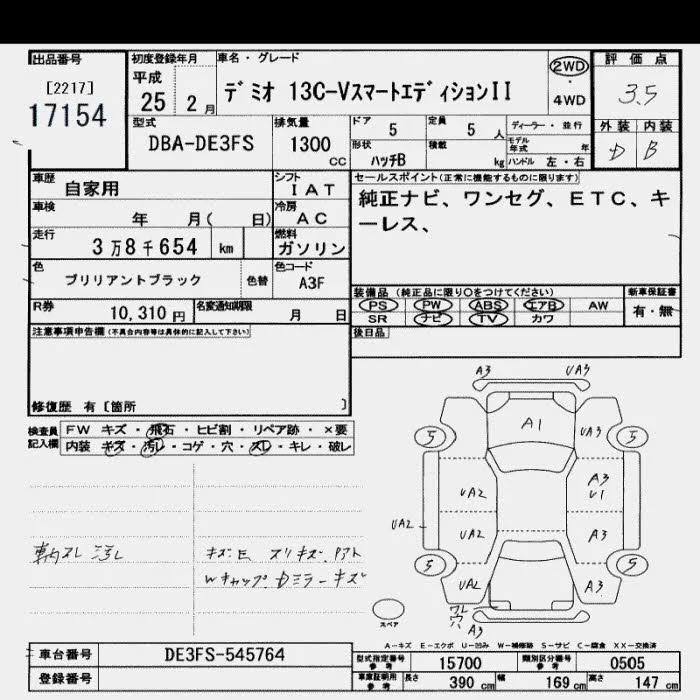 出品番号
[2217]
17154
初度登録年月
平成
25 2月
車名・グレード
デミオ 13C-VスマートエディションII
2WD
4WD
評価点
3.5
外装 内装
D B
型式
DBA-DE3FS
排気量
1300
CC
ドア
5
定員
5人
ディーラー・並行
形状
ハッチB
積載
kg
モデル年式 年
ハンドル 左・右
車歴
自家用
シフト
IAT
車検
年 月( 日)
冷房
AC
走行
3万8千654 km
燃料
ガソリン
色
ブリリアントブラック
色替
色コード
A3F
R券
10,310円
名変通知期限
月 日
セールスポイント(正常に機能するものに限ります)
純正ナビ、ワンセグ、ETC、キ
ーレス、
装備品 (純正品に限り○をつけてください)
新車保証書
PS PW ABS エアB AW
SR ナビ TV カワ
有・無
後日品
注意事項申告欄(不具合内容等は具体的に記入して下さい)
修復歴 有[箇所 ]
検査員
記入欄
FW キズ・飛石・ヒビ割・リペア跡・×要
内装 キズ・汚レ・コゲ・穴・スレ・キレ・破レ
A3 UA3
A1
5 UA3 5
UA2 A3
U1
UA2 UA2 A3
5 5
UA2 A3
ワレ
穴
A3
スペア
車内スレ 汚レ
キズE スリキズ
Wキャップ Dミラーキズ
A-キズ E-エクボ U-凹み W-補修跡 S-サビ C-腐食 XX-交換済
車台番号
DE3FS-545764
登録番号
型式指定番号
参考
15700
類別区分番号
参考
0505
車庫証明用
参考
長さ
390 cm
幅
169 cm
高さ
147 cm